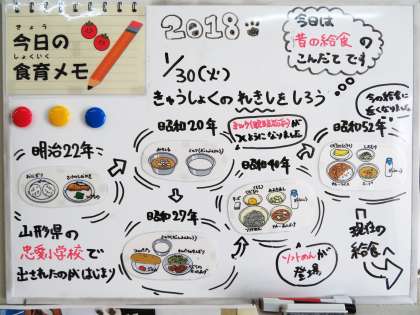 きょう
今日の
しょくいく
食育メモ
2018
1/30(火)
きゅうしょくのれきしをしろう
今日は
昔の給食の
こんだてです
明治22年
山形県の
忠愛小学校で
出されたのがはじまり
昭和20年
昭和27年
が
つようになりました
昭和40年
ソフトめんが
登場
昭和52年
今の給食に
近くなりました
現在の
給食へ